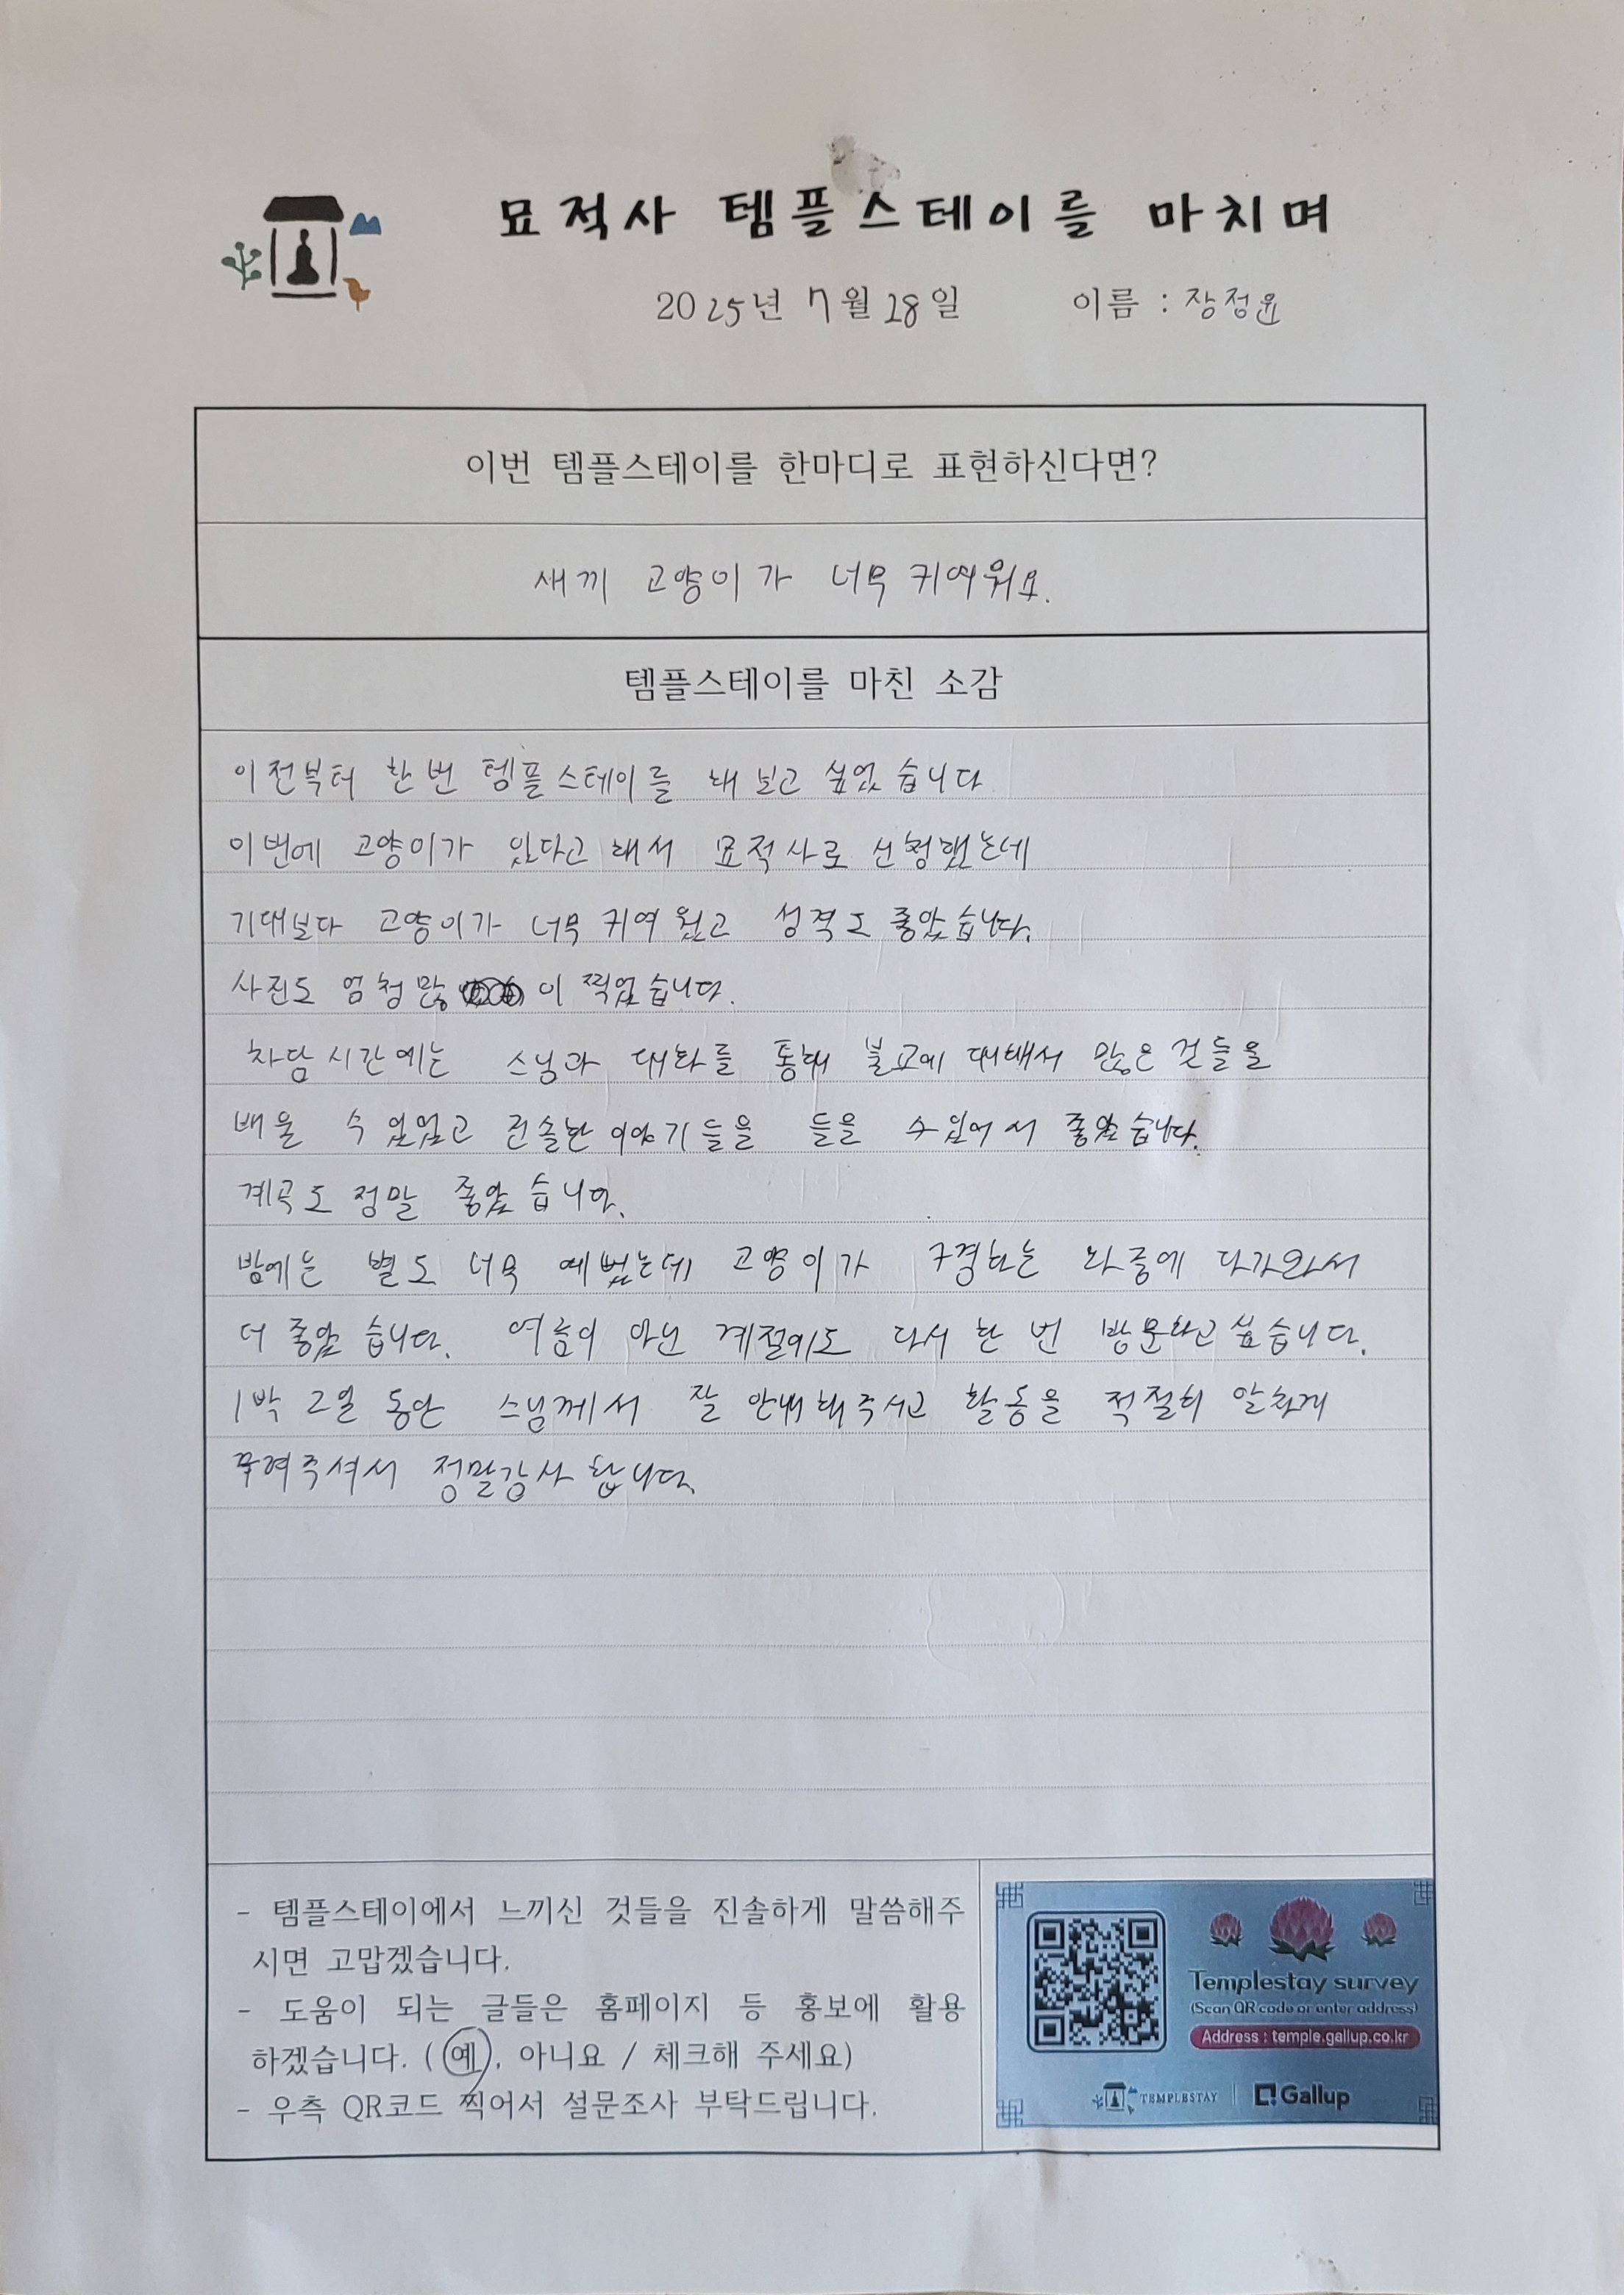 묘적사 템플스테이를 마치며
2025년 7월 28일 이름 : 장정윤
이번 템플스테이를 한마디로 표현하신다면?
새끼 고양이가 너무 귀여워요.
템플스테이를 마친 소감
이전부터 한 번 템플스테이를 해 보고 싶었습니다
이번에 고양이가 있다고 해서 묘적사로 신청했는데
기대보다 고양이가 너무 귀여웠고 성격도 좋았습니다.
사진도 엄청 많이 찍었습니다.
차담 시간에는 스님과 대화를 통해 불교에 대해서 많은 것들을
배울 수 있었고 진솔한 이야기들을 들을 수 있어서 좋았습니다.
계곡도 정말 좋았습니다.
밤에는 별도 너무 예뻤는데 고양이가 구경하는 와중에 다가와서
더 좋았습니다. 여름이 아닌 계절에도 다시 한 번 방문하고 싶습니다.
1박 2일 동안 스님께서 잘 안내해주시고 활동을 적절히 알차게
꾸려주셔서 정말 감사합니다.
- 템플스테이에서 느끼신 것들을 진솔하게 말씀해주
시면 고맙겠습니다.
- 도움이 되는 글들은 홈페이지 등 홍보에 활용
하겠습니다. ( 예, 아니요 / 체크해 주세요)
- 우측 QR코드 찍어서 설문조사 부탁드립니다.
Templestay survey
(Scan QR code or enter address)
Address : temple.gallup.co.kr
TEMPLESTAY Gallup